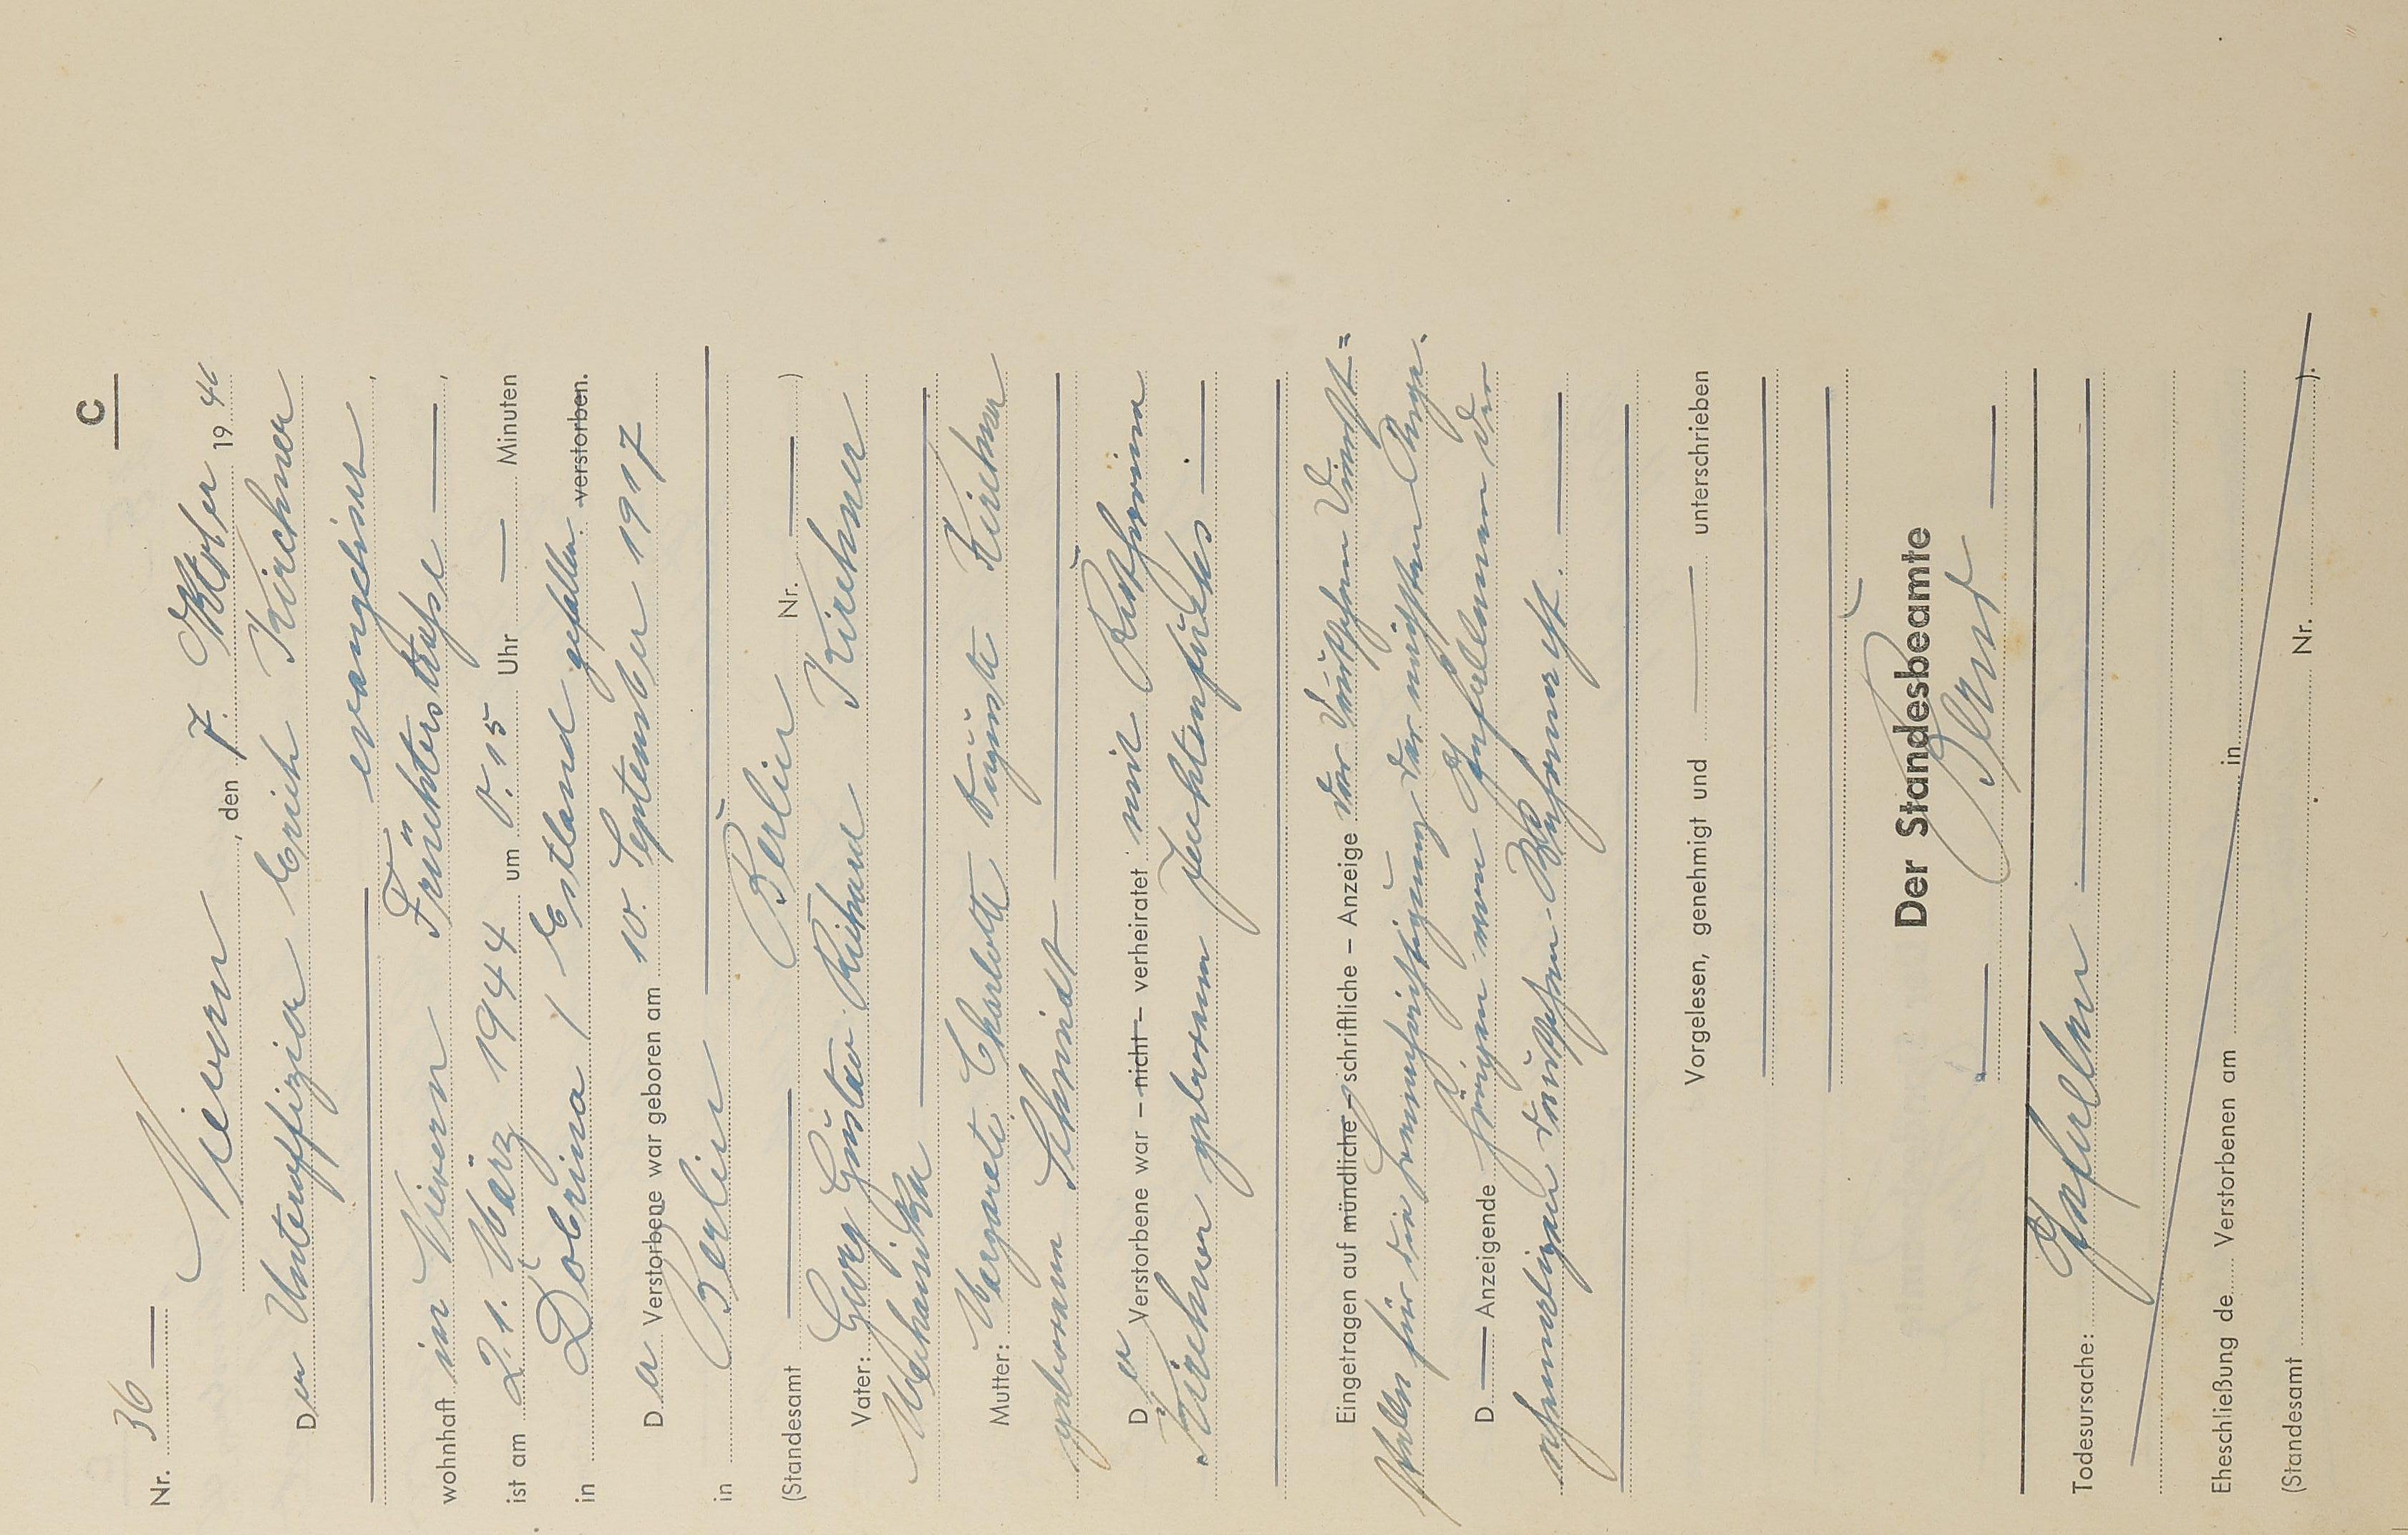 C
Nr. 36
Nievern, den 7. Oktober 1946
Der Unteroffizier Erich Kirchner
evangelisch
wohnhaft in Nievern Früchterstraße
ist am 21. März 1944 um 0.15 Uhr — Minuten
in Dobrina / Estland gefallen. verstorben.
Der Verstorbene war geboren am 10. September 1917
in Berlin
(Standesamt Berlin Nr. — )
Vater: Georg Gustav Richard Kirchner
Mechaniker
Mutter: Margarete Charlotte Auguste Kirchner
geborene Schmidt
Der Verstorbene war – nicht – verheiratet mit Katharina
Kirchner geborenen
Eingetragen auf mündliche – schriftliche – Anzeige der Deutschen Dienst=
stelle für die Benachrichtigung der nächsten Ange-
D — Anzeigende hörigen von Gefallenen der
ehemaligen deutschen Wehrmacht.
Vorgelesen, genehmigt und — unterschrieben
Der Standesbeamte
Todesursache: Gefallen
Eheschließung de Verstorbenen am in
(Standesamt Nr. ).